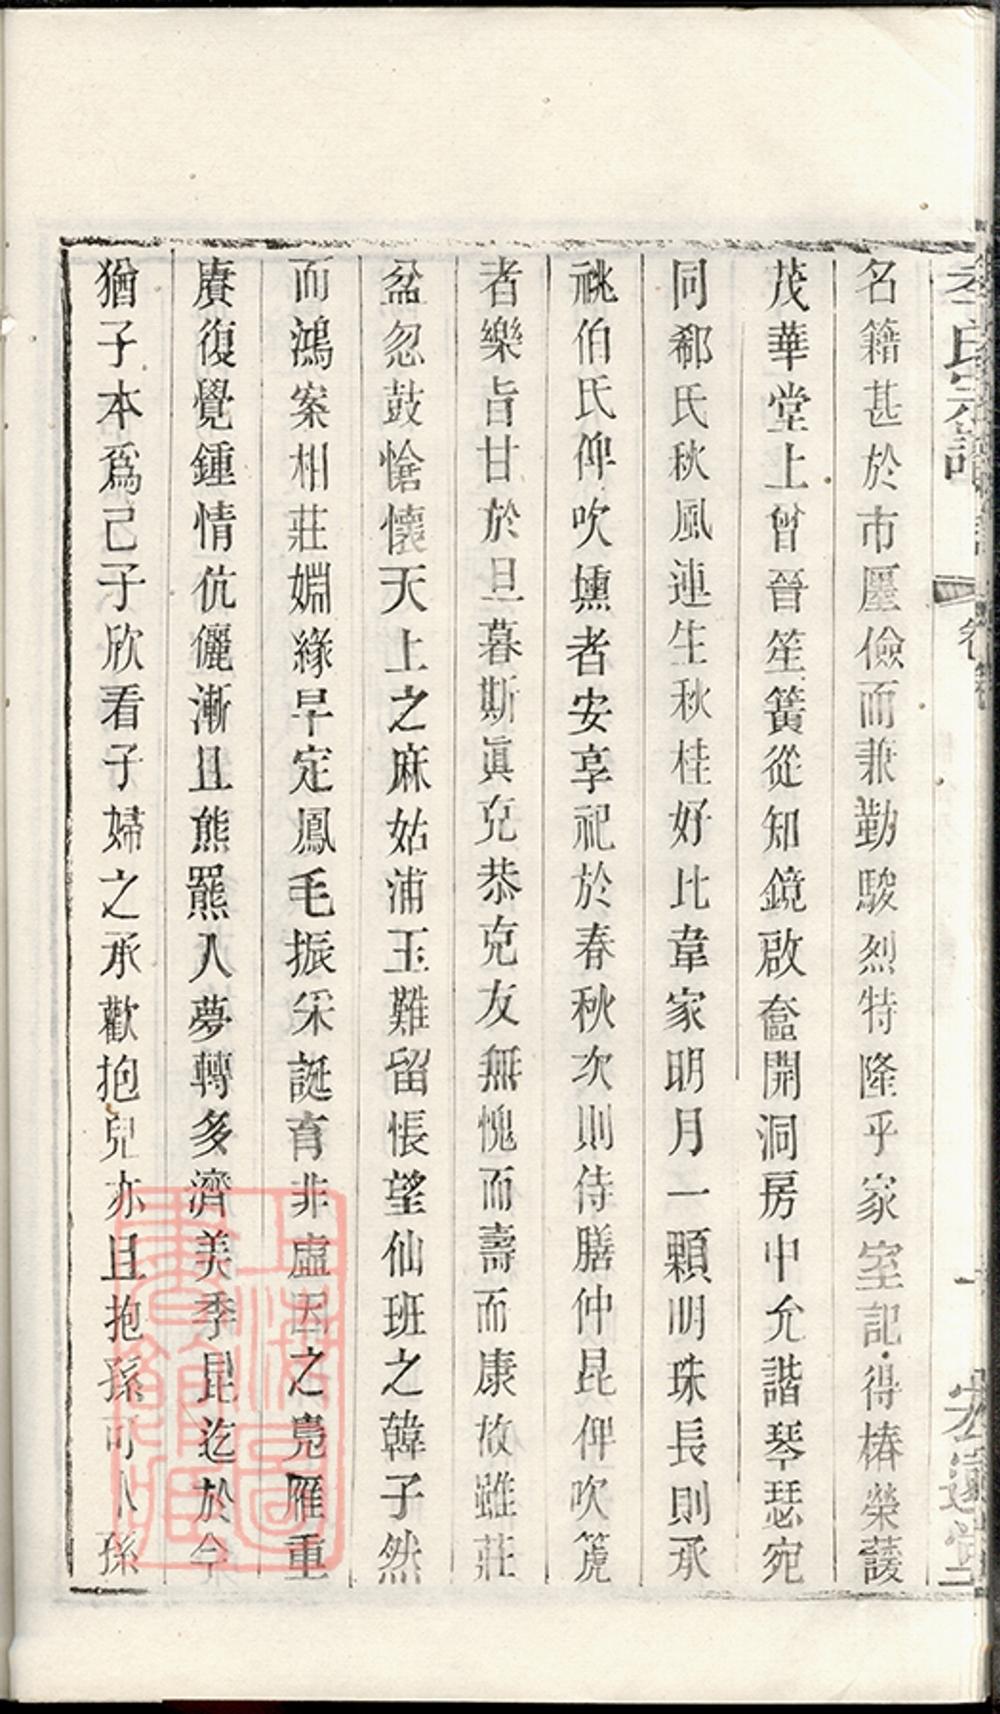 名籍甚於市廛儉而兼勤駿烈特隆乎家室記得椿榮護
茂華堂上曾晉笙簧從知鏡啟奩開洞房中允諧琴瑟宛
同郗氏秋風連生秋桂好比韋家明月一顆明珠長則承
祧伯氏俾吹壎者安享祀於春秋次則侍膳仲昆俾吹篪
者樂旨甘於旦暮斯眞克恭克友無愧而壽而康故雖莊
盆忽鼓愴懷天上之麻姑浦玉難留悵望仙班之韓子然
而鴻案相莊姻緣早定鳳毛振采誕育非虛因之鳧雁重
賡復覺鍾情伉儷漸且熊羆入夢轉多濟美季昆迄於今
猶子本爲己子欣看子婦之承歡抱兒亦且抱孫可卜孫
李氏宗譜
卷
一